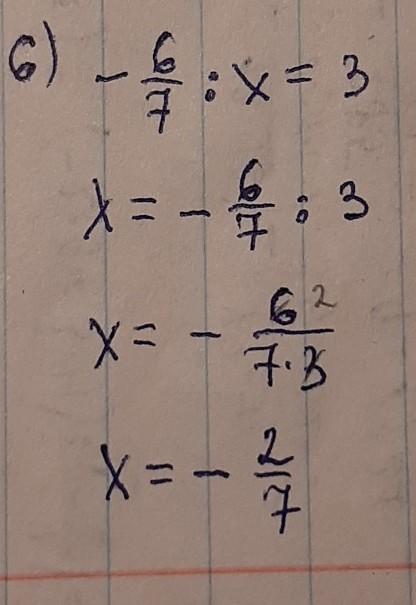 6) - 6/7 : x = 3
x = - 6/7 : 3
x = - 6²/7·3
x = - 2/7